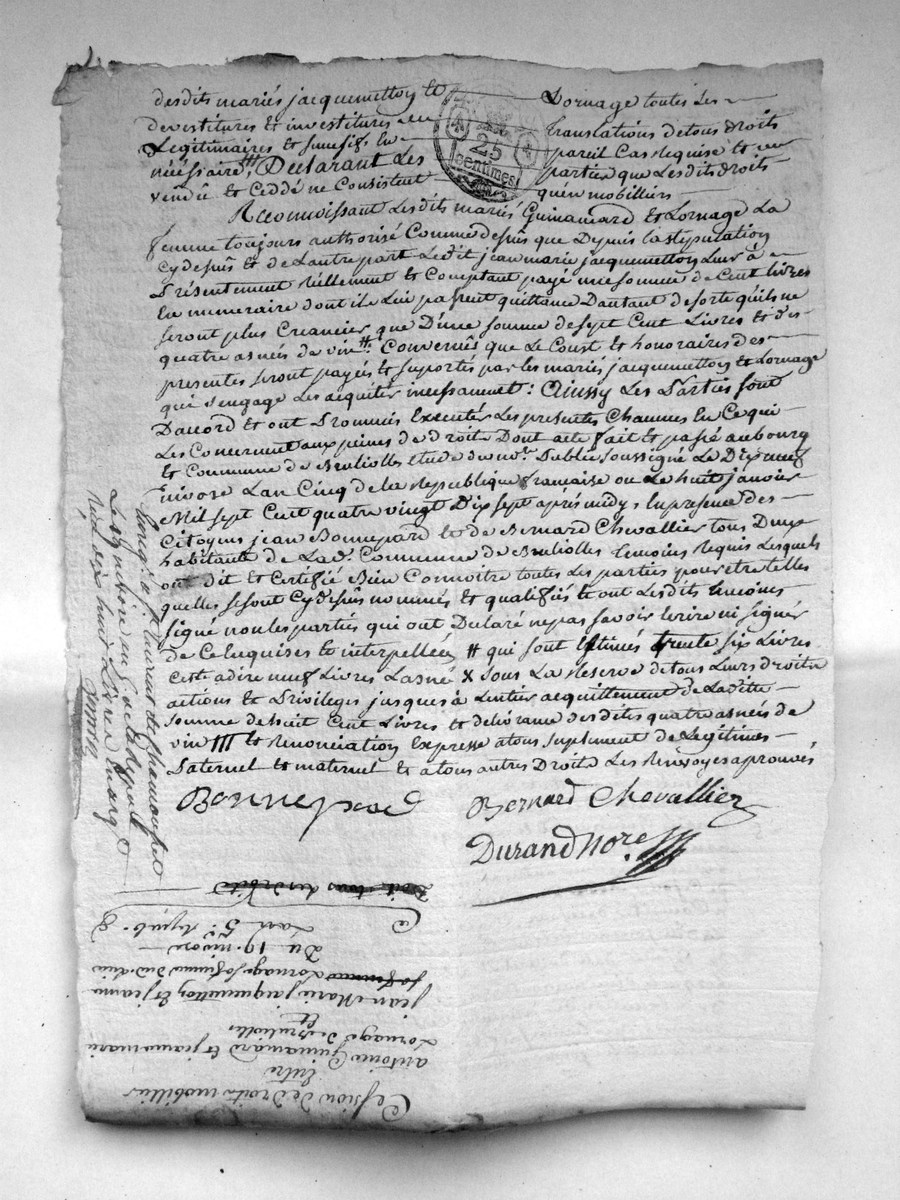 desdits mariés jacquemetton & Lornage toutes Les
devestitures & investitures en translations de tous droits
Legitimaires & en pareil Cas Requise &
nécéssaire, Declarant Les parties que Lesdits droits
vendû & Ceddé ne Consistent qu'en mobilliers
25 centimes
Reconnoissant Lesdits mariés Guinamard & Lornage La
femme toujours authorisé Comme dessûs que Depuis la stipulation
Cy dessûs & de Lautre part Ledit jean marie jacquemetton Leur à
Présentement Réllement & Comptant payé une somme de Cent livres
En numeraire dont ils Lui passent quittance Dautant de sorte quils ne
seront plus Creancier que D'une somme de sept Cent Livres & des
quatre asnés de vin. Convenûs que Le Coust & honoraires des
presentes seront payés & suportés par les mariés jacquemetton & Lornage
qui s'engage Les acquiter incessament: Ainssy Les Parties sont
Daccord & ont Prommis Executer Les presentes Chacunes En Ce qui
Les Concernent aux peines de droits Dont acte fait & passé au bourg
& Commune de Brulliolles étude du not. Public soussigné Le Dix neuf
nivose Lan Cinq de la Republique française ou Le huit janvier
Mil sept Cent quatre vingt Dix sept aprés midy, En presence des
Citoyens jean Bonnepard & de Bernard Chevallier tous Deux
habitants de Lad. Commune de Brulliolles temoins Requis Lesquels
ont Dit & Certifié Bien Connoitre toutes Les parties pour etre telles
quelles se sont Cy dessûs nommés & qualifiés & ont Lesdits temoins
signé non les parties qui ont Declaré ne pas savoir écrire ni signér
de Ce Enquises & interpellées # qui sont Estimés trente six Livres
Ceste adire neuf Livres Lasné X sous La Reserve de tous Leurs droits
actions & Privileges jusques à Lentier acquittement de Laditte
somme de huit Cent Livres & delivrance desdites quatre asnés de
vin ### & Renonciation Expresse a tous suplement de Legitimes
Paternel & maternel & a tous autres Droits Les Renvoyes aprouvés
Bonnepard
Bernard Chevallier
Durand Nore
Cession de Droits mobillier
Entre
antoine Guinamard & jeanne marie
Lornage de Brulliolles
Et
jean Marie jacquemetton & jeanne
Lornage sa femme
Du 19. nivose
Lan 5. Repub.